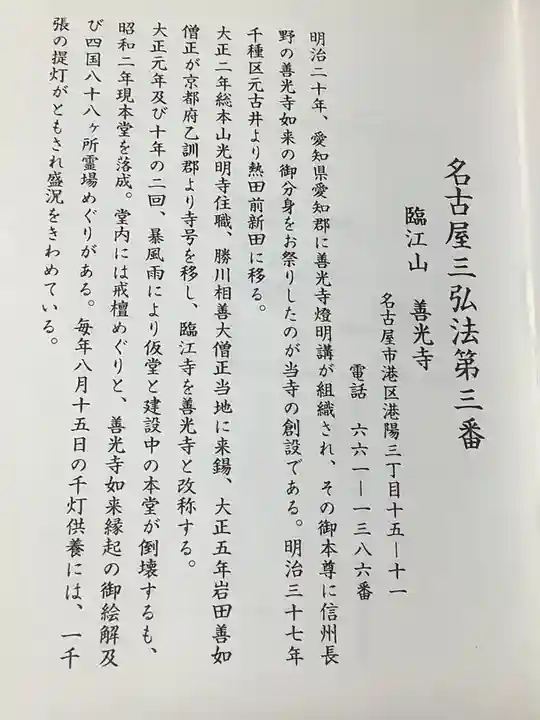 名古屋三弘法第三番
臨江山　善光寺
名古屋市港区港陽三丁目十五―十一
電話　六六一―一三八六番
明治二十年、愛知県愛知郡に善光寺燈明講が組織され、その御本尊に信州長
野の善光寺如来の御分身をお祭りしたのが当寺の創設である。明治三十七年
千種区元古井より熱田前新田に移る。
大正二年総本山光明寺住職、勝川相善大僧正当地に来錫、大正五年岩田善如
僧正が京都府乙訓郡より寺号を移し、臨江寺を善光寺と改称する。
大正元年及び十年の二回、暴風雨により仮堂と建設中の本堂が倒壊するも、
昭和二年現本堂を落成。堂内には戒檀めぐりと、善光寺如来縁起の御絵解及
び四国八十八ヶ所霊場めぐりがある。毎年八月十五日の千灯供養には、一千
張の提灯がともされ盛況をきわめている。